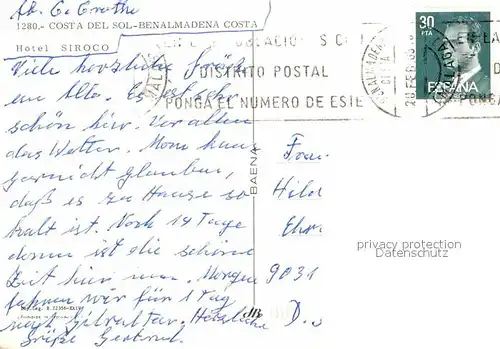 Ab. G. Grothe
1280.- COSTA DEL SOL-BENALMADENA COSTA
Hotel SIROCO
DISTRITO POSTAL
PONGA EL NUMERO DE ESTE
BENALMADENA
COSTA
30
PTA
ESPAÑA
D
PONGA
Viele herzliche Grüße
an Alle. Es ist sehr
schön hier. Vor allem
das Wetter. Man kann
garnicht glauben,
daß es zu Hause so
kalt ist. Noch 14 Tage
dann ist die schöne
Zeit hier um. Morgen
fahren wir für 1 Tag
nach Gibraltar. Herzliche
Grüße Gertrud.
BAENA
Frau
Hild
9031
D.
privacy protection
Datenschutz